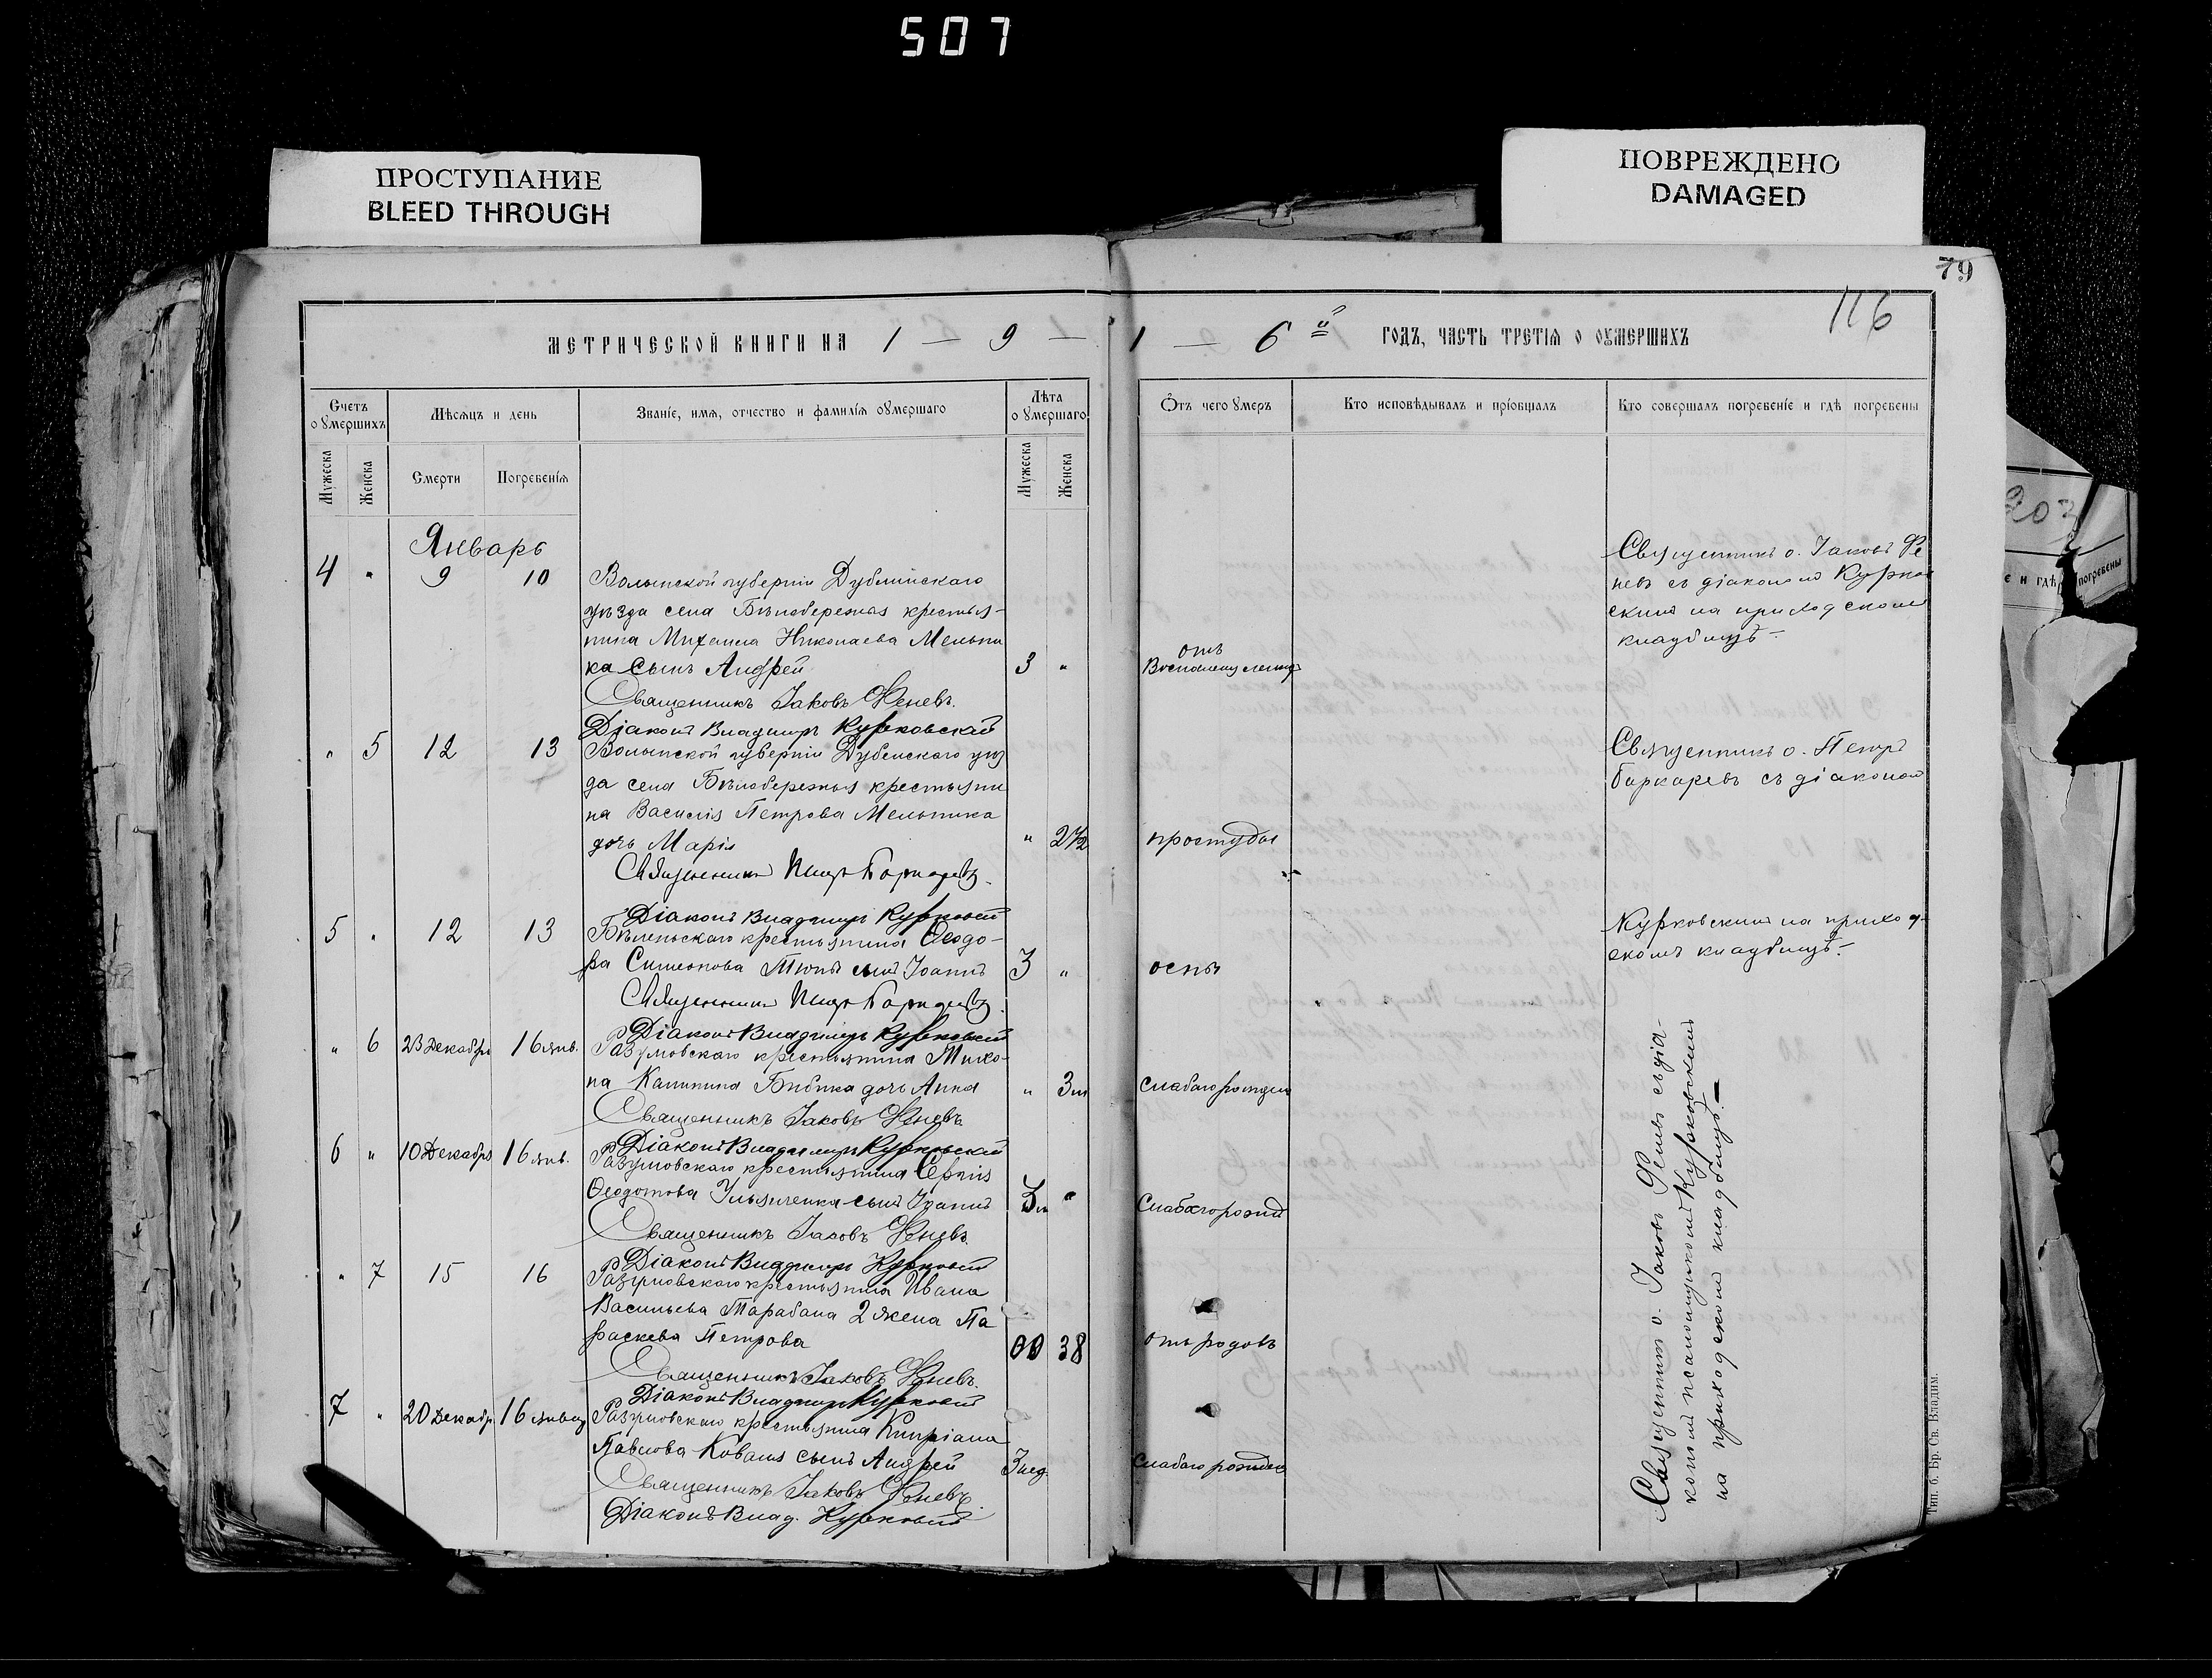 507
ПРОСТУПАНИЕ
BLEED THROUGH
ПОВРЕЖДЕНО
DAMAGED
79
116
МЕТРИЧЕСКОЙ КНИГИ НА 1 — 9 — 1 — 6 й ГОДЪ, ЧАСТЬ ТРЕТІЯ О ОУМЕРШИХЪ
Счетъ о умершихъ
Мѣсяцъ и день
Званіе, имя, отчество и фамилія оумершаго
Лѣта о умершаго
Отъ чего умеръ
Кто исповѣдывалъ и пріобщалъ
Кто совершалъ погребеніе и гдѣ погребены
Мужеска
Женска
Смерти
Погребенія
Мужеска
Женска
Январь
4 " 9 10 Волынской губерніи Дубенскаго
уѣзда села Бѣлобережья крестья-
нина Михаила Николаева Мельни
ка сынъ Андрей 3 " отъ
Священникъ Іаковъ Феневъ.
Діаконъ Владимиръ Курковскій
Священникъ о. Іаковъ Фе
невъ съ діакономъ Курков
скимъ на приходскомъ
кладбищѣ –
" 5 12 13 Волынской губерніи Дубенскаго уѣз
да села Бѣлобережья крестьяни
на Василія Петрова Мельника
дочь Марія " 2½ простуды
Священникъ Петръ
Діаконъ Владимиръ Курковскій
Священникъ о. Петръ
съ діакономъ
5 " 12 13 крестьянина Ѳеодо-
ра Симеонова сынъ Іоаннъ 3 " оспы
Священникъ Петръ
Діаконъ Владимиръ Курковскій
Курковскимъ на приход-
скомъ кладбищѣ –
" 6 23 Декабря 16 янв. Разумовскаго крестьянина Тихо-
на Калинина Бибика дочь Анна " 3 м
Священникъ Іаковъ Феневъ
Діаконъ Владимиръ Курковскій
6 " 10 Декабря 16 янв. Разумовскаго крестьянина Сергія
Ѳеодотова Ульянченка сынъ Іоаннъ "
Священникъ Іаковъ Феневъ
Діаконъ Владимиръ Курковскій
" 7 15 16 Разумовскаго крестьянина Ивана
Васильева Тарабана 2 жена Па
раскева Петрова 38 отъ родовъ
Священникъ Іаковъ Феневъ.
Діаконъ Владимиръ Курковскій
7 " 20 Декабр. 16 января Разумовскаго крестьянина Кипріана
Павлова Коваля сынъ Андрей 3 нед.
Священникъ Іаковъ Феневъ.
Діаконъ Влад. Курковскій
Священникъ о. Іаковъ Феневъ съ діа-
кономъ псаломщикомъ Курковскимъ
на приходскомъ кладбищѣ. —
Тип. б. Бр. Св. Владим.
203
е и гдѣ погребены